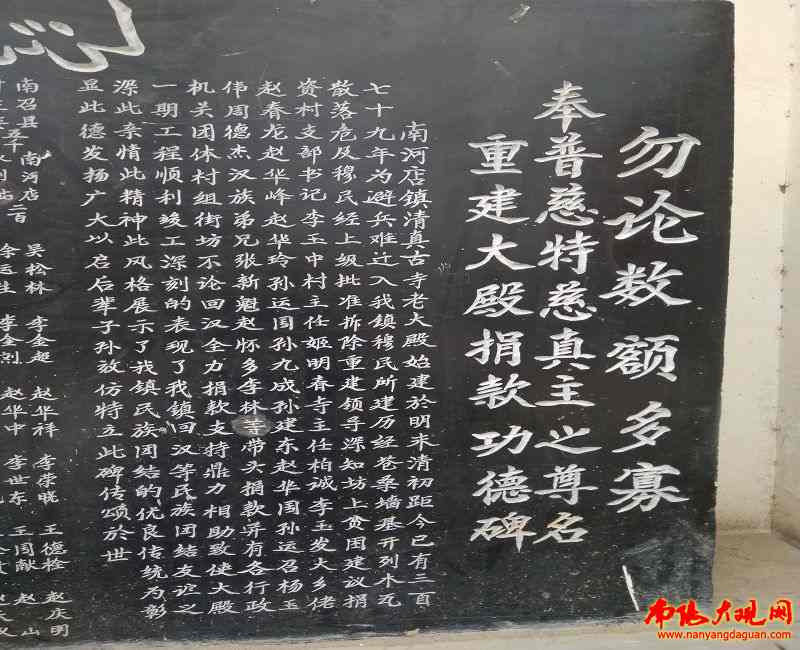 勿论数额多寡
奉普慈特慈真主之尊名
重建大殿捐款功德碑
南河店镇清真古寺老大殿始建於明末清初距今已有三百
七十九年为避兵难迁入我镇穆民所建历经苍桑墙基开列木瓦
散落危及穆民经上级批准拆除重建领导深知坊上贫困建议捐
资村支部书记李玉中村主任姬明春寺主任柏诚李玉发大乡佬
赵春龙赵华峰赵华玲孙运国孙九成孙建东赵华国孙运召杨玉
伟周德杰汉族弟兄张新魁赵怀多李林等带头捐款并有各行政
机关团体村组街坊不论回汉全力捐款支持鼎力相助致使大殿
一期工程顺利竣工深刻的表现了我镇回汉等民族团结友谊之
深此亲情此精神此风格展示了我镇民族团结的优良传统为彰
显此德发扬广大以启后辈子孙效仿特立此碑传颂於世
南召县 南河店 吴松林 李金超 赵华祥 李荣晓 王德栓 赵庆明
五千 二百 余运生 赵华中 李世 王国献 赵 山
南阳大观网
www.nanyangdaguan.com